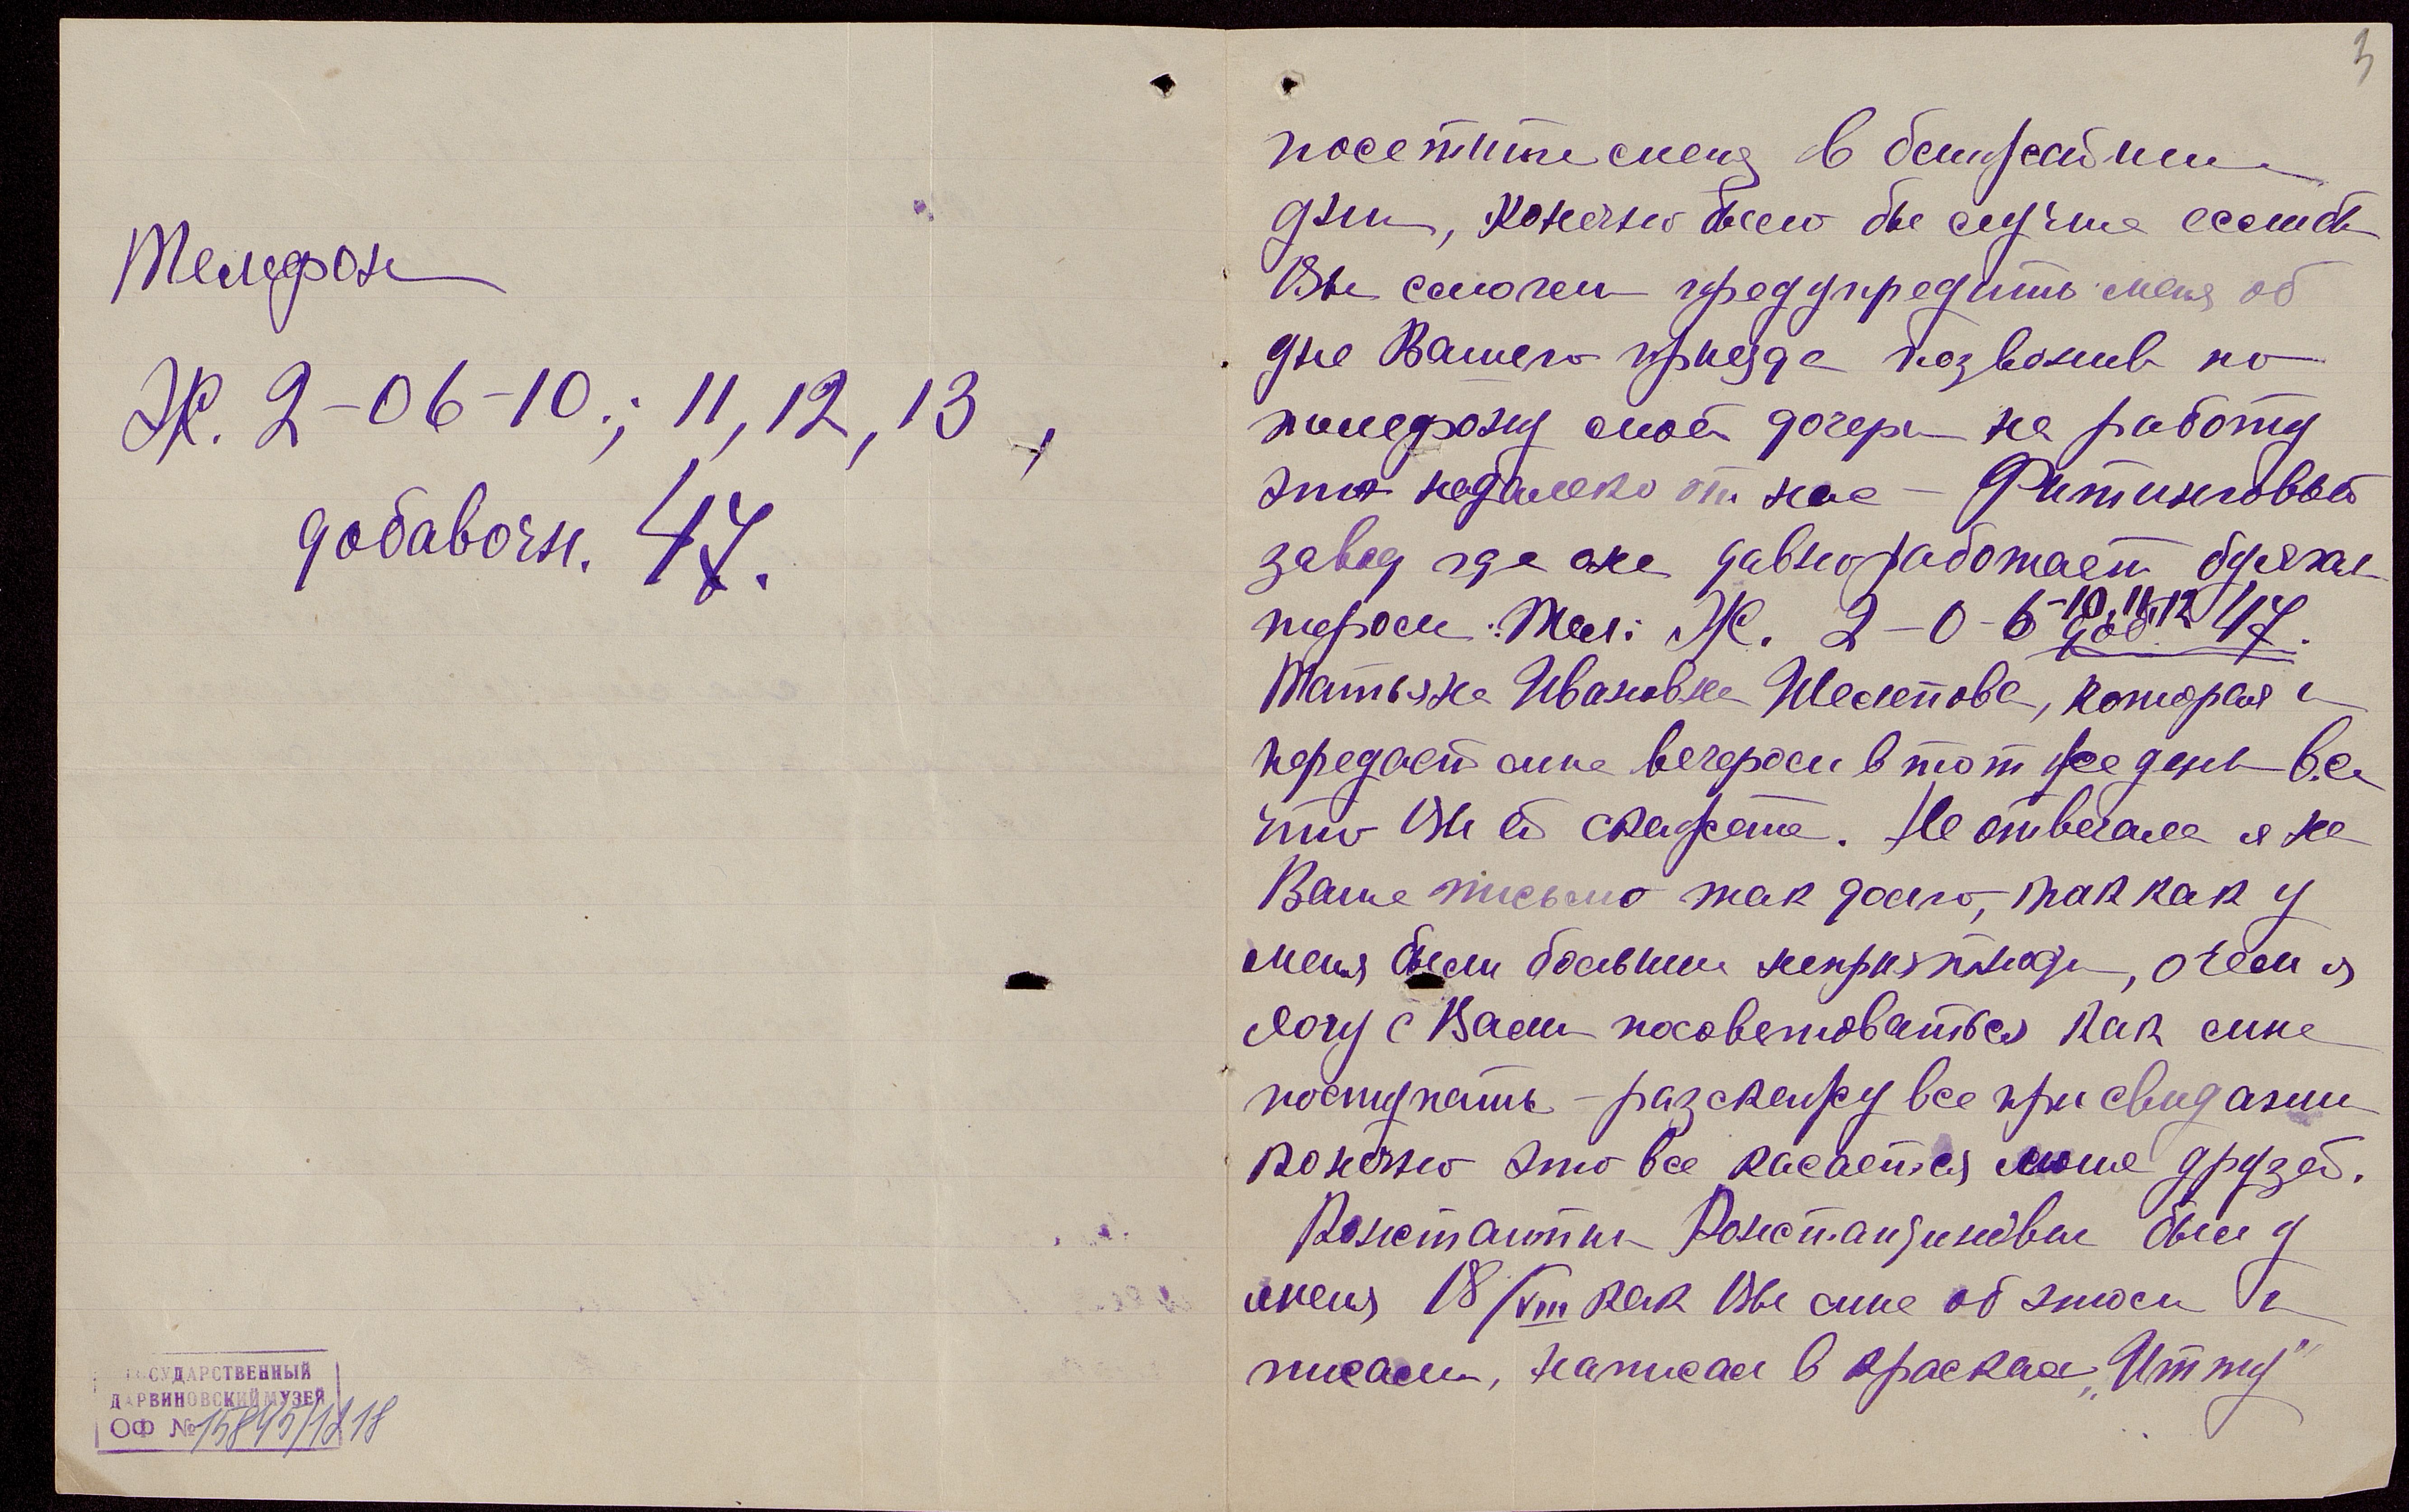 Телефон
Ж. 2-06-10.; 11, 12, 13,
добавочн. 47.
ГОСУДАРСТВЕННЫЙ
ДАРВИНОВСКИЙ МУЗЕЙ
ОФ № 15845/1218
3
посетите меня в ближайшие
дни, конечно было бы лучше еслиб
Вы смогли предупредить меня об
дне Вашего приезда позвонив по
телефону моей дочери на работу
это недалеко от нас – Фитинговый
завод где она давно работает бухгал
тером: Тел: Ж. 2-0-6-10, 11, 12 доб 47.
Татьяна Ивановна Шелепова, которая и
передаст мне вечером в тот же день все
что Вы ей скажете. Не отвечала я на
Ваше письмо так долго, так как у
меня были большие неприятности, о чем я
хочу с Вами посоветоваться как мне
поступать – разскажу все при свидании
конечно это все касается моих друзей.
Константин Константинович был у
меня 18/VIII как Вы мне об этом и
писали, написал в красках „Итту"